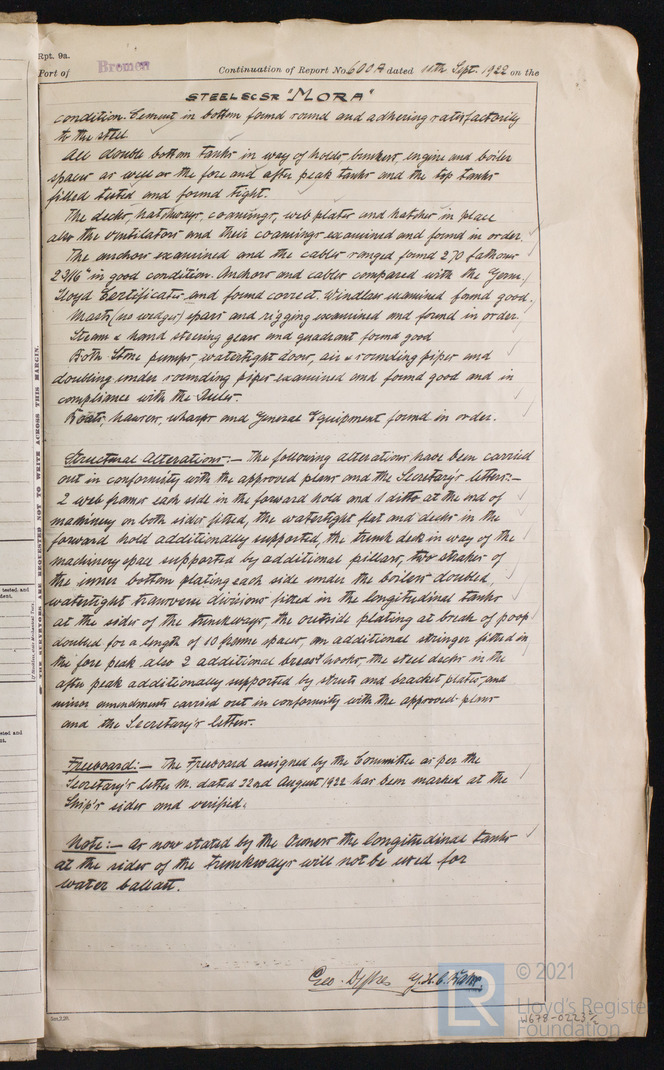 Rpt. 9a.
Port of Bremen Continuation of Report No. 600A dated 11th Sept. 1922 on the
STEEL SC SR "MORA"
condition. Cement in bottom found sound and adhering satisfactorily
to the steel
All double bottom tanks in way of holds, bunkers, engine and boiler
spaces as well as the fore and after peak tanks and the top tanks
filled tested and found tight.
The decks, hatchways, coamings, web plates and hatches in place
also the ventilators and their coamings examined and found in order.
The anchors examined and the cables ranged found 270 fathoms
2 3/16" in good condition. Anchors and cables compared with the Germ.
Lloyd Certificates and found correct. Windlass examined found good.
Masts (no wedges) spars and rigging examined and found in order.
Steam & hand steering gear and quadrant found good
Both Stone pumps, watertight doors, air & sounding pipes and
doubling under sounding pipes examined and found good and in
compliance with the Rules.
Boats, hawsers, warps and General Equipment found in order.
Structural Alterations:— The following alterations have been carried
out in conformity with the approved plans and the Secretary's letters:—
2 web frames each side in the forward hold and 1 ditto at the end of
machinery on both sides fitted, the watertight flat and decks in the
forward hold additionally supported, the trunk deck in way of the
machinery space supported by additional pillars, two strakes of
the inner bottom plating each side under the boilers doubled,
watertight transverse divisions fitted in the longitudinal tanks
at the sides of the trunkways, the outside plating at break of poop
doubled for a length of 10 frame spaces, an additional stringer fitted in
the fore peak also 2 additional breast hooks, the steel decks in the
after peak additionally supported by struts and bracket plates, and
minor amendments carried out in conformity with the approved plans
and the Secretary's letters.
Freeboard:— The Freeboard assigned by the Committee as per the
Secretary's letter M. dated 22nd August 1922 has been marked at the
Ship's sides and verified.
Note:— As now stated by the Owners the longitudinal tanks
at the sides of the trunkways will not be used for
water ballast.
Geo.
THE SURVEYORS ARE REQUESTED NOT TO WRITE ACROSS THIS MARGIN.
tested, and
LR
© 2021
Lloyd's Register
Foundation
W678-0223 2/2